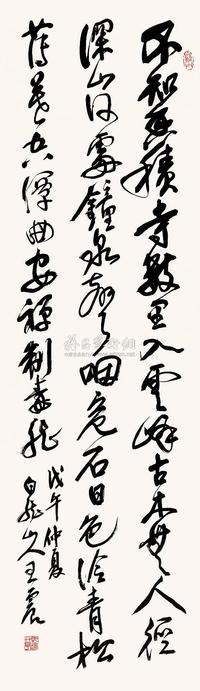 不知香积寺数里入云峰古木無人径
深山何處鐘泉聲咽危石日色冷青松
薄暮空潭曲安禅制毒龍
戊午仲夏
白龍山人王震